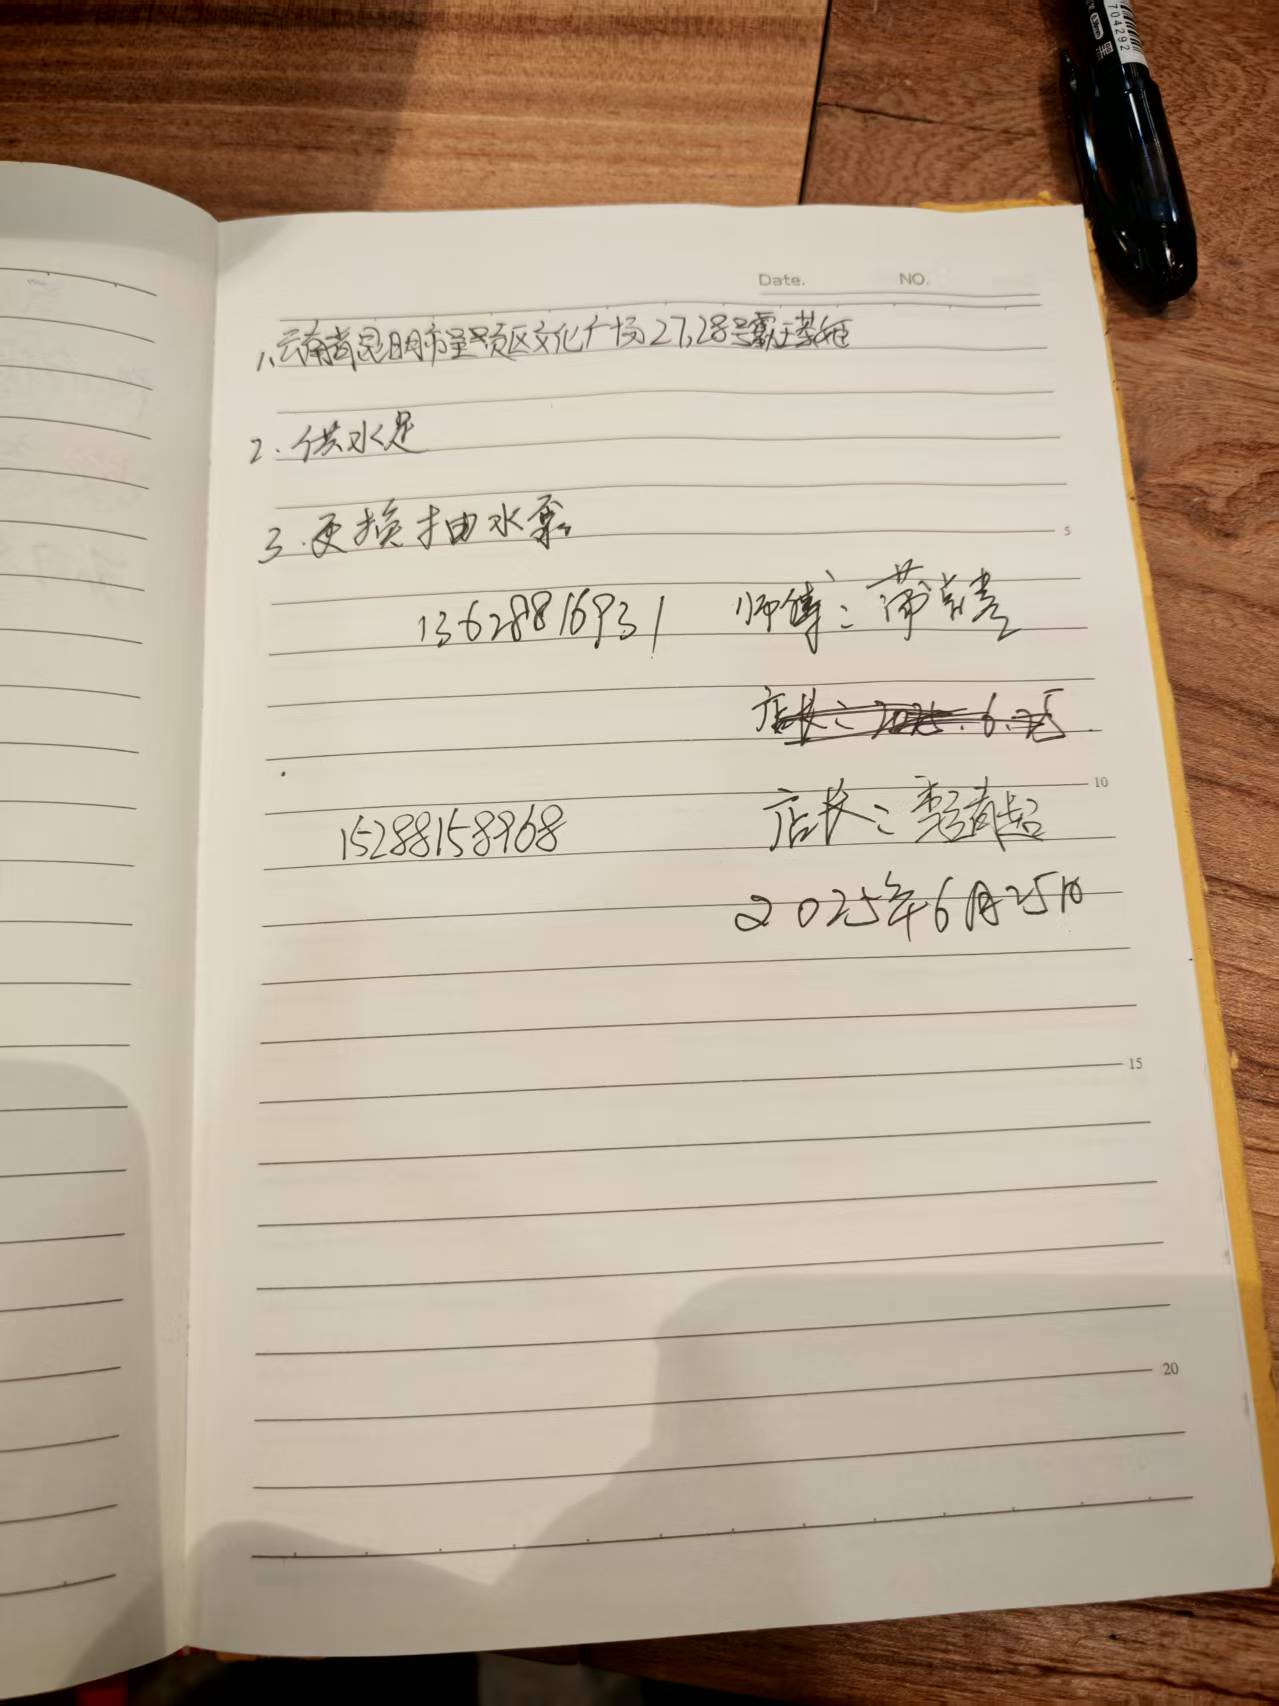 704292
黑
Date. NO.
1.云南省昆明市呈贡区文化广场27,28号霸王茶姬
2.供水足
3.更换抽水泵
5
13628816931 师傅:
店长:2025.6.25
10
15288158968 店长:李
2025年6月25日
15
20